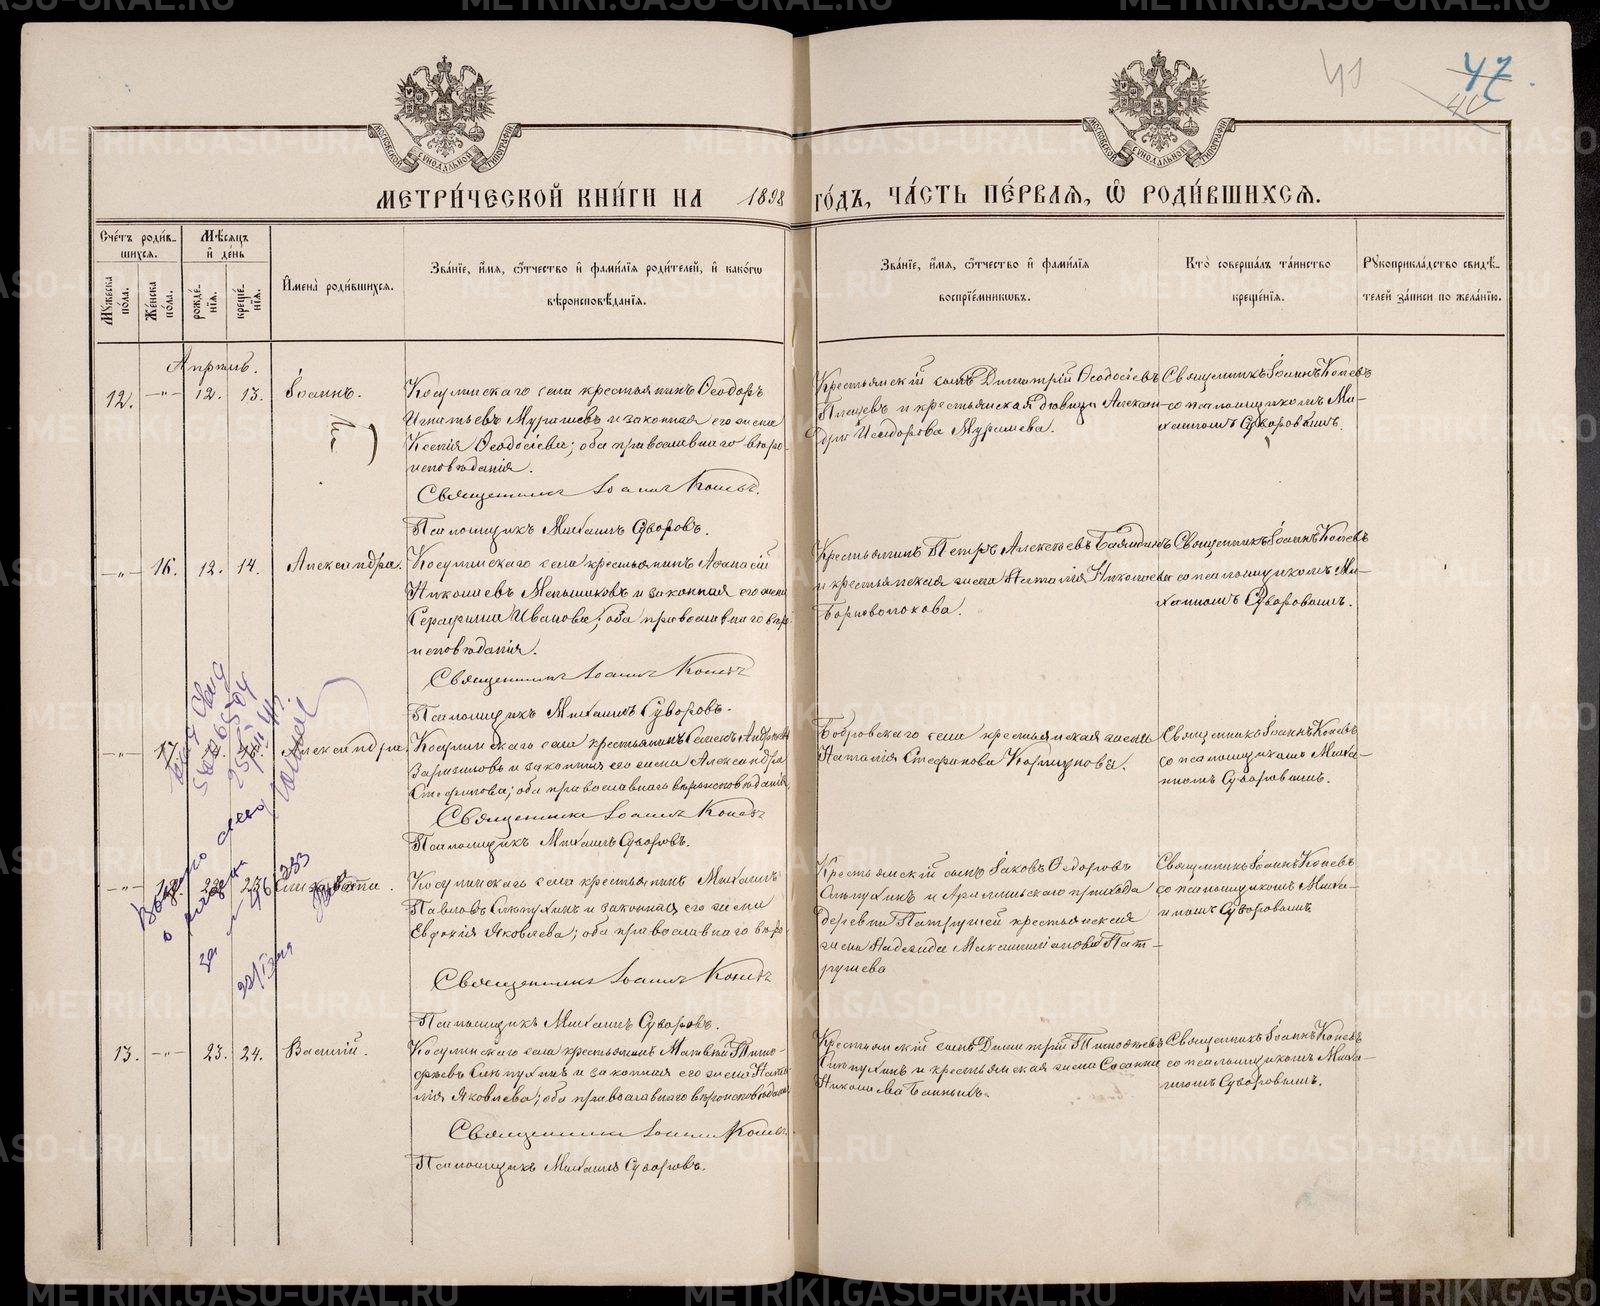 47
МЕТРИ́ЧЕСКОЙ КНИ́ГИ НА 1898 ГО́ДЪ, ЧА́СТЬ ПЕ́РВАѦ, Ѡ҆ РОДИ́ВШИХСѦ.
МОСКОВСКОЙ СѴНОДАЛЬНОЙ ТИПОГРАФІИ
МОСКОВСКОЙ СѴНОДАЛЬНОЙ ТИПОГРАФІИ
Сче́тъ роди́вшихся.
Мѣ́сяцъ и҆ де́нь
Мꙋжеска по́ла.
Же́нска по́ла.
рожде́нїя.
креще́нїя.
И҆мена̀ роди́вшихся.
Зва́нїе, и҆́мя, ѻ҆́тчество и҆ фами́лїя роди́телей, и҆ како́гѡ
вѣроисповѣ́данїя.
Зва́нїе, и҆́мя, ѻ҆́тчество и҆ фами́лїя
воспрїе́мникѡвъ.
Кто̀ соверша́лъ та́инство
креще́нїя.
Рꙋкоприкла́дство свидѣ́-
телей за́писи по жела́нїю.
Апрѣль.
12. —"— 12. 13. Іоаннъ.
Косулинскаго села крестьянинъ Ѳеодоръ
Игнатьевъ Мурашевъ и законная его жена
Ксенія Ѳеодосіева; оба православнаго вѣро-
исповѣданія.
Священникъ Іоаннъ Копевъ.
Псаломщикъ Михаилъ Суворовъ.
Крестьянскій сынъ Димитрій Ѳеодосіевъ
и крестьянская дѣвица Алексан-
дра Исидорова Мурашева.
Священникъ Іоаннъ Копевъ
со псаломщикомъ Ми-
хаиломъ Суворовымъ.
—"— 16. 12. 14. Александра.
Косулинскаго села крестьянинъ Аѳанасій
Николаевъ Меньшиковъ и законная его жена
Серафима Иванова; оба православнаго вѣро-
исповѣданія.
Священникъ Іоаннъ Копевъ
Псаломщикъ Михаилъ Суворовъ.
Крестьянинъ Петръ Алексѣевъ
и крестьянская жена Наталія Николаева
Борноволокова.
Священникъ Іоаннъ Копевъ
со псаломщикомъ Ми-
хаиломъ Суворовымъ.
—"— 17. Александра.
Косулинскаго села крестьянинъ Семенъ
и законная его жена Александра
Стефанова; оба православнаго вѣроисповѣданія.
Священникъ Іоаннъ Копевъ
Псаломщикъ Михаилъ Суворовъ.
Бобровскаго села крестьянская жена
Наталія Стефанова Коршунова.
Священникъ Іоаннъ Копевъ
со псаломщикомъ Миха-
иломъ Суворовымъ.
—"— Елизавета.
Косулинскаго села крестьянинъ Михаилъ
Павловъ Слѣпухинъ и законная его жена
Евдокія Яковлева; оба православнаго вѣро-
Священникъ Іоаннъ Копевъ
Псаломщикъ Михаилъ Суворовъ.
Крестьянскій сынъ Іаковъ Ѳедоровъ
Слѣпухинъ и Арамильскаго прихода
деревни Патрушей крестьянская
жена Надежда Максимиліанова Пат-
рушева
Священникъ Іоаннъ Копевъ
со псаломщикомъ Миха-
иломъ Суворовымъ
13. —"— 23. 24. Василій.
Косулинскаго села крестьянинъ Матвѣй Тимо-
феевъ Слѣпухинъ и законная его жена Ната-
лія Яковлева; оба православнаго вѣроисповѣданія
Священникъ Іоаннъ Копевъ
Псаломщикъ Михаилъ Суворовъ.
Крестьянскій сынъ Димитрій Тимофеевъ
Слѣпухинъ и крестьянская жена Сосанна
Николаева
Священникъ Іоаннъ Копевъ
со псаломщикомъ Миха-
иломъ Суворовымъ.
METRIKI.GASO-URAL.RU